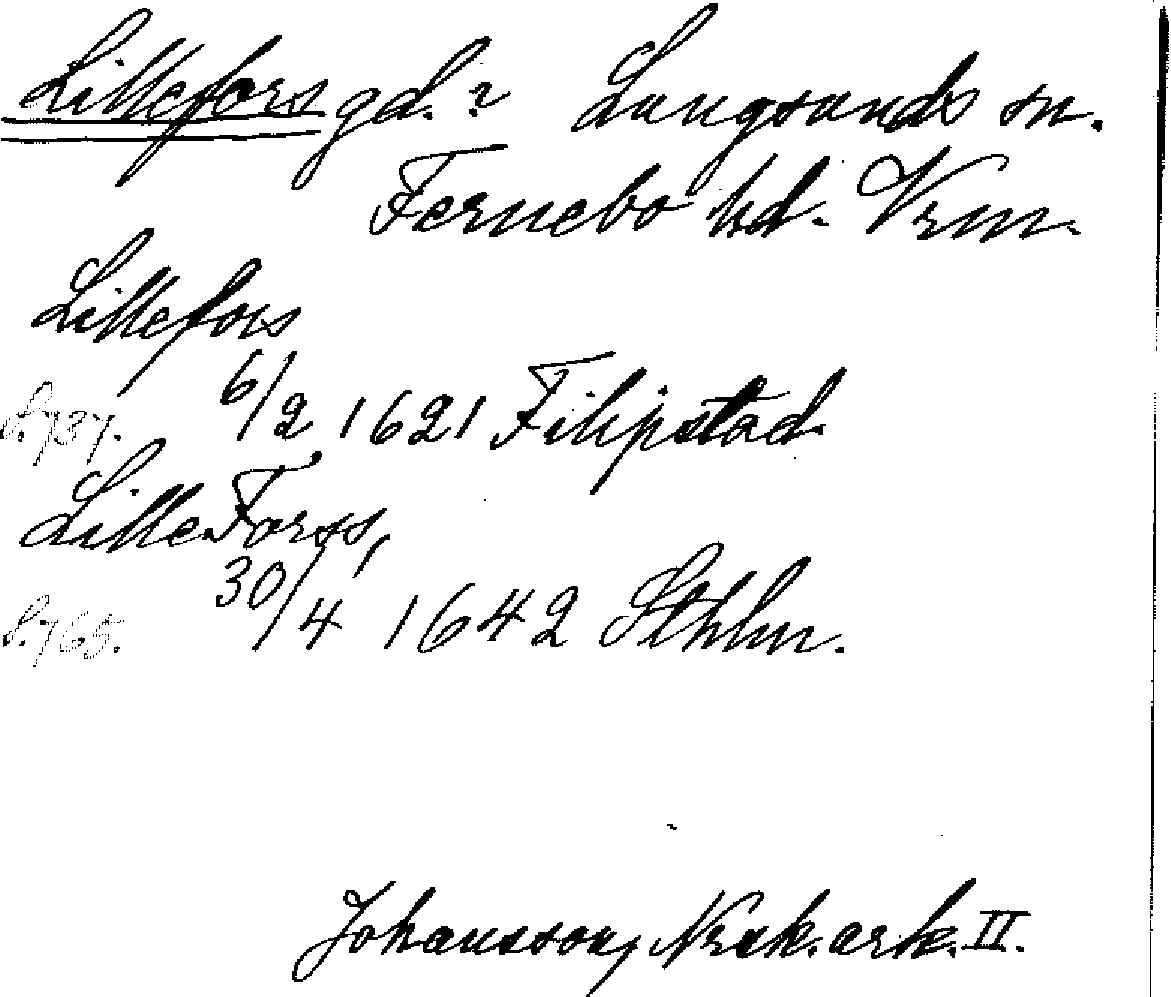 Lillefors gd.? Lungsunds sn.
Fernebo hd. Vrm.
Lillefors
S. 737. 6/2 1621 Filipstad.
Lille Forss,
S. 765. 30/4 1642 Sthlm.
Johansson, Norsk. ark. II.